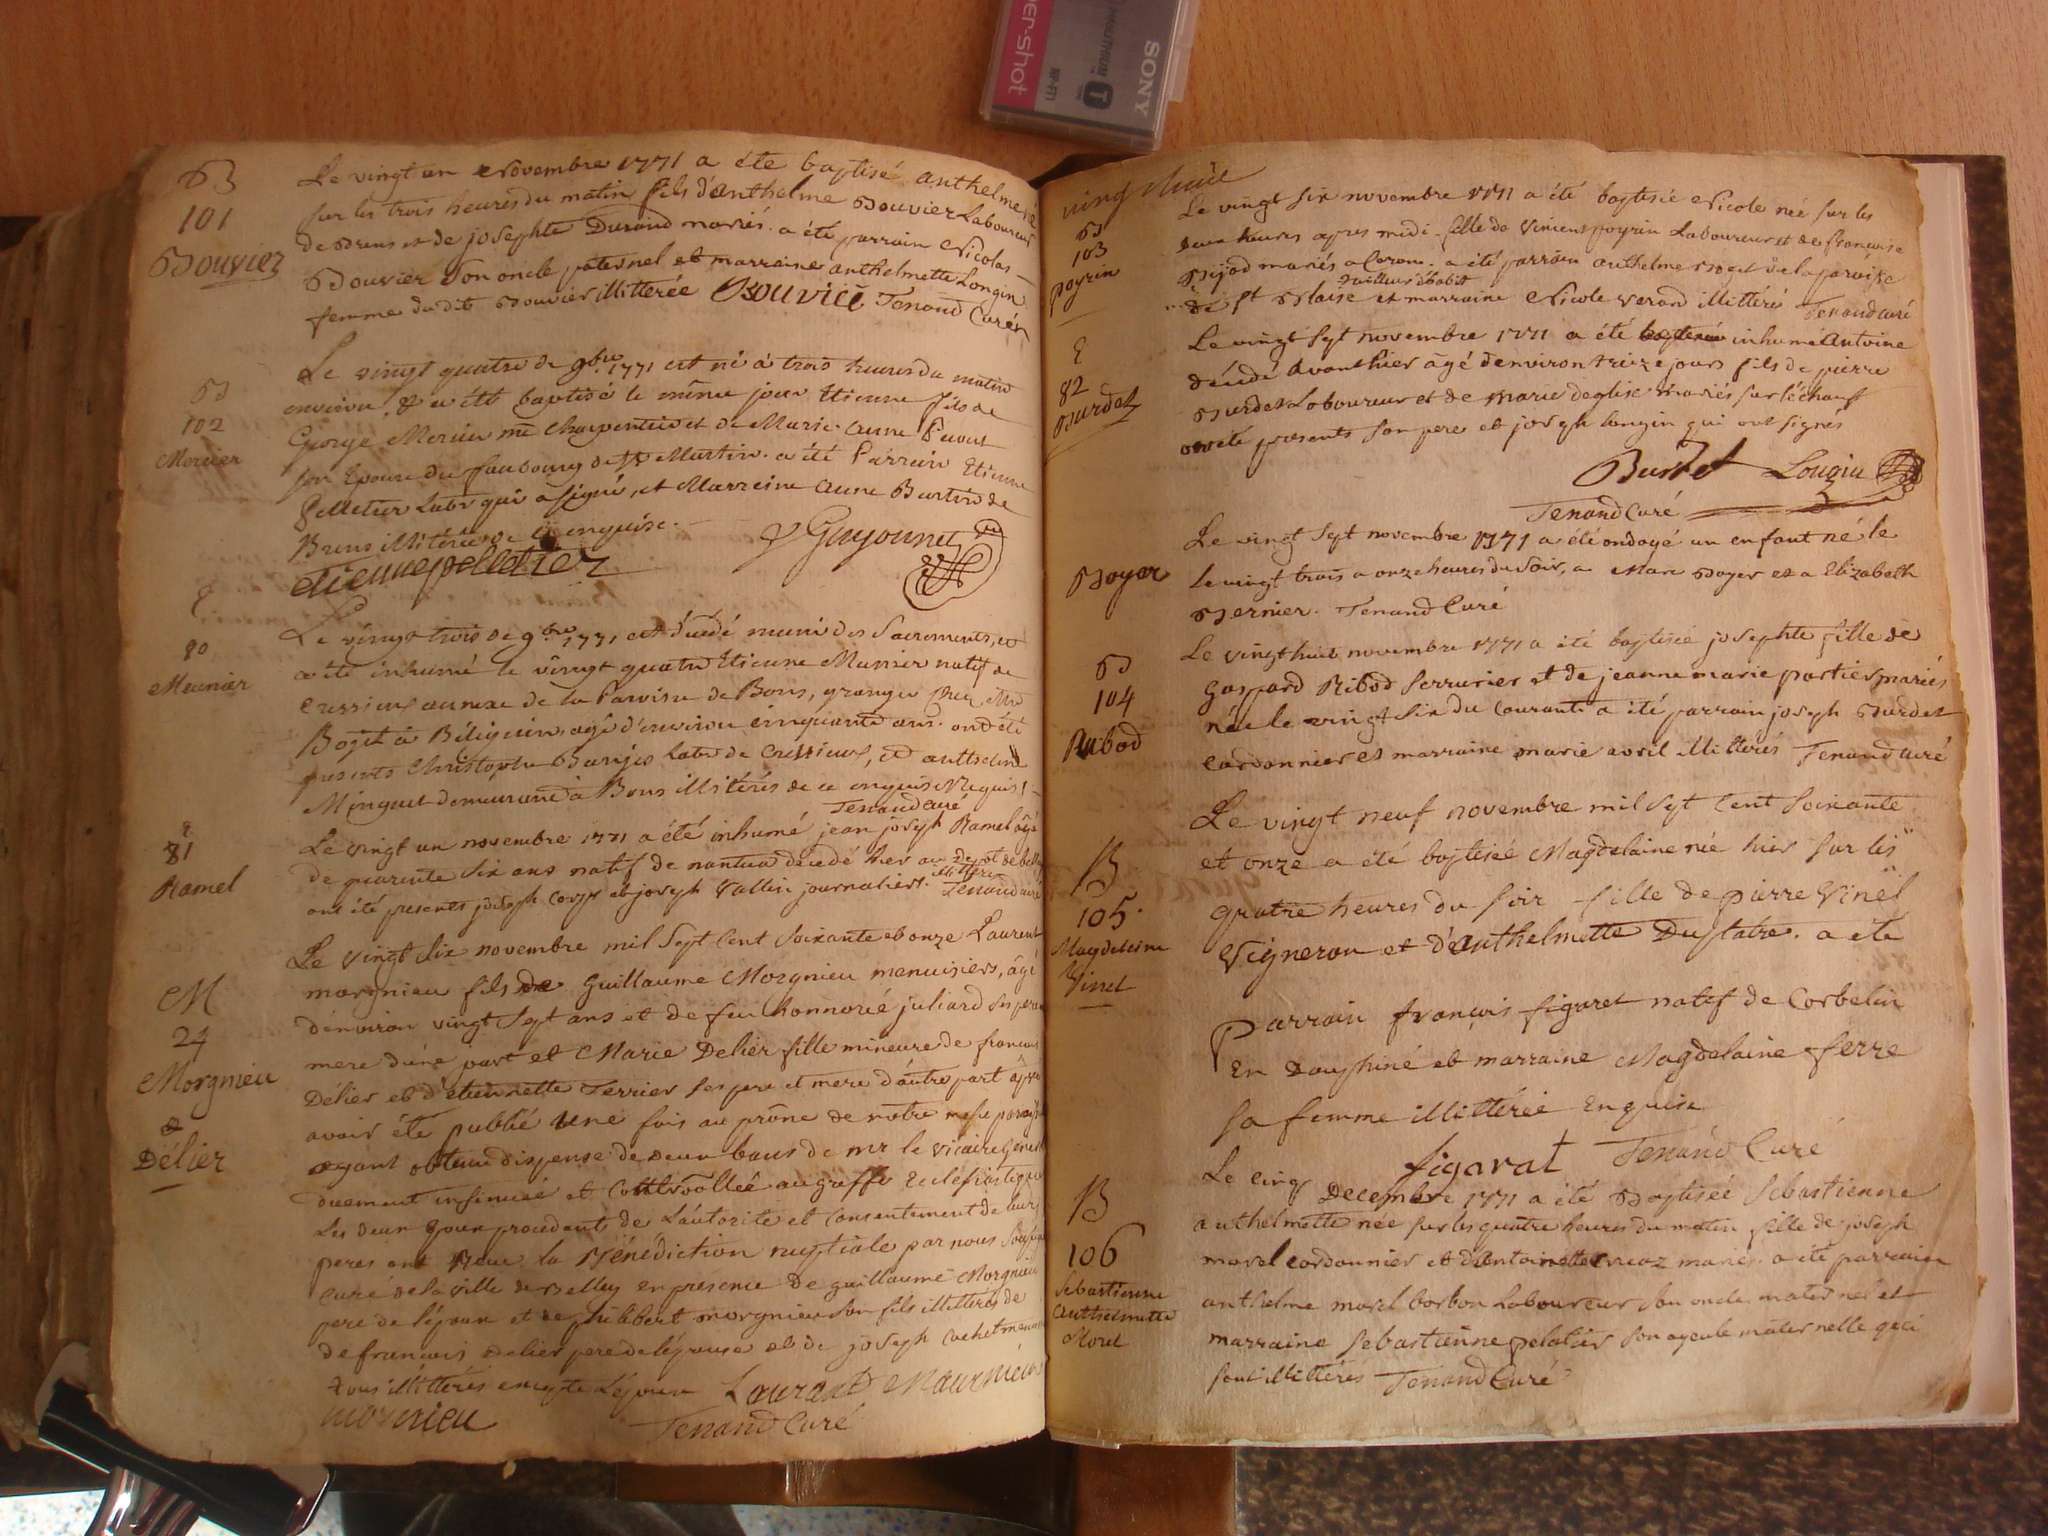 SONY
per-shot
T
B
101
Bouvier
Le vingt un Novembre 1771 a été baptisé anthelme né
sur les trois heures du matin fils d'anthelme Bouvier Laboureur
de Brens et de josephte Durand mariés. a été parrain Nicolas
Bouvier Son oncle paternel et marraine anthelmette Longin
femme du dit Bouvier illitterée Bouvier Tenand Curé
B
102
Mercier
Le vingt quatre de 9bre 1771 est né à trois heures du matin
environ, & a été baptisé le même jour Etienne fils de
George Mercier me Charpentier et de Marie Anne
son Epouse du faubourg de St Martin. a été Parrain Etienne
Pelletier Labr qui a signé, et Marreine Anne de
Brens illiterée de ce enquise.
etienne pelletier
E
80
Meunier
Le vingt trois de 9bre 1771 est decedé muni des Sacrements, et
a été inhumé le vingt quatre Etienne Munier natif de
Cressieux annexe de la Paroisse de Bons, granger chez
Bogit à agé d'environ cinquante ans. ont été
presents Christophe Labr de Cressieux, et anthelme
Minguet demeurant à Bons illitérés de ce enquis Requis
Tenand curé
81
Ramel
Le vingt un novembre 1771 a été inhumé jean joseph Ramel âgé
de quarante six ans natif de nantua décedé hier au
ont été presents joseph Corps et joseph Vallin journaliers. illitterés Tenand curé
M
24
Morgnieu
&
Délier
Le vingt Six novembre mil Sept Cent Soixante et onze Laurent
morgnieu fils de Guillaume Morgnieu menuisiers, âgé
d'environ vingt Sept ans et de feu honnorée juliard Ses pere
mere d'une part et Marie Delier fille mineure de françois
Delier et d'etiennette Terrier Ses pere et mere d'autre part après
avoir été publié une fois au prône de nôtre messe
ayant obtenu dispense de deux bans de mr le Vicaire General
duement insinuée et Conttroollée au greffe Eclesiastique
Les deux Epoux procedants de L'autorité et Consentement de leurs
peres ont Recu la Bénédiction nuptiale par nous
Curé de la Ville de Belley en presence de guillaume Morgnieu
pere de l'époux et de philibert morgnieu son fils illitterés de
de françois Delier pere de l'épouse et de joseph
tous illitterés excepté L'époux Laurant
morgnieu
Tenand Curé
vingt huit
B
103
poyrin
Le vingt Six novembre 1771 a été baptisée Nicole née Sur les
deux heures apres midi fille de Vincent poyrin Laboureur et de françoise
mariés a Coron. a été parrain anthelme Boget de la paroisse
de St Blaise et marraine Nicole Verand illitterés Tenand curé
E
82
Burdet
Le vingt Sept novembre 1771 a été inhumé Antoine
décédé Avant hier âgé d'environ treize jours fils de pierre
Burdet Laboureur et de marie deglise mariés
ont été presents Son pere et joseph longin qui ont signes
Burdet Longin
Tenand Curé
Boyer
Le vingt Sept novembre 1771 a été ondoyé un enfant né le
Le vingt trois a onze heures du Soir, a Marc Boyer et a Elizabeth
Bernier. Tenand Curé
B
104
Ribod
Le vingt huit novembre 1771 a été baptisée josephte fille de
Gaspard Ribod Serrurier et de jeanne marie portier mariés
née le vingt Six du Courant. a été parrain joseph Burdet
Cordonnier et marraine marie avril illitterés Tenand curé
B
105.
Magdeleine
Vinet
Le vingt neuf novembre mil Sept Cent Soixante
et onze a été baptisée Magdelaine née hier Sur les
quatre heures du Soir fille de pierre Vinet
Vigneron et d'anthelmette Dustatre. a été
parrain françois figaret natif de Corbelin
En Dauphiné et marraine Magdelaine ferre
Sa femme illitterée Enquise
figarat Tenand Curé
B
106
Sebastienne
Anthelmette
Morel
Le cinq Decembre 1771 a été Baptisée Sebastienne
anthelmette née Sur les quatre heures du matin fille de joseph
morel cordonnier et d'antoinette mariés. a été parrain
anthelme morel borbon Laboureur Son oncle maternel et
marraine Sebastienne pelatier Son ayeule maternelle qui
Sont illitterés Tenand Curé